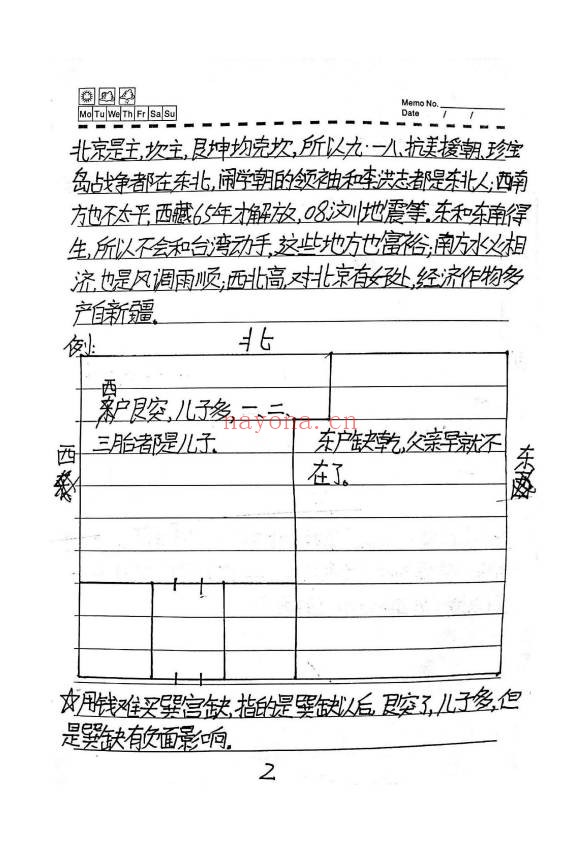 Memo No.
Mo Tu We Th Fr Sa Su
Date / /
北京是主,坎主,艮坤均克坎,所以九·一八、抗美援朝、珍宝
岛战争都在东北,闹学朝的领袖和李洪志都是东北人;西南
方也不太平,西藏65年才解放,08汶川地震等。东和东南得
生,所以不会和台湾动手,这些地方也富裕;南方水火相
济,也是风调雨顺;西北高,对北京有好处,经济作物多
产自新疆。
例:
北
西
户艮突,儿子多,一、二、
三胎都是儿子。
nayona.cn
东户缺乾,父亲早就不
在了。
西
东
☆用钱难买巽宫缺,指的是巽缺以后,艮突了,儿子多,但
是巽缺有负面影响。
2